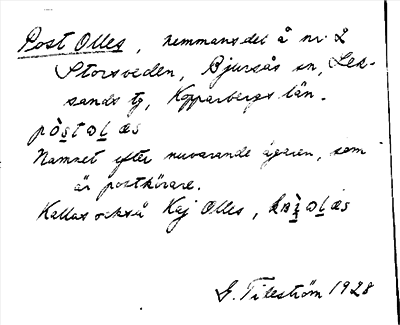 Post Olles, hemmansdel å nr 2
Storsveden, Bjursås sn, Lek-
sands tg, Kopparbergs län.
pòstəlæs
Namnet efter nuvarande ägaren, som
är postkörare.
Kallas också Kaj Olles,
G. Tileström 1928